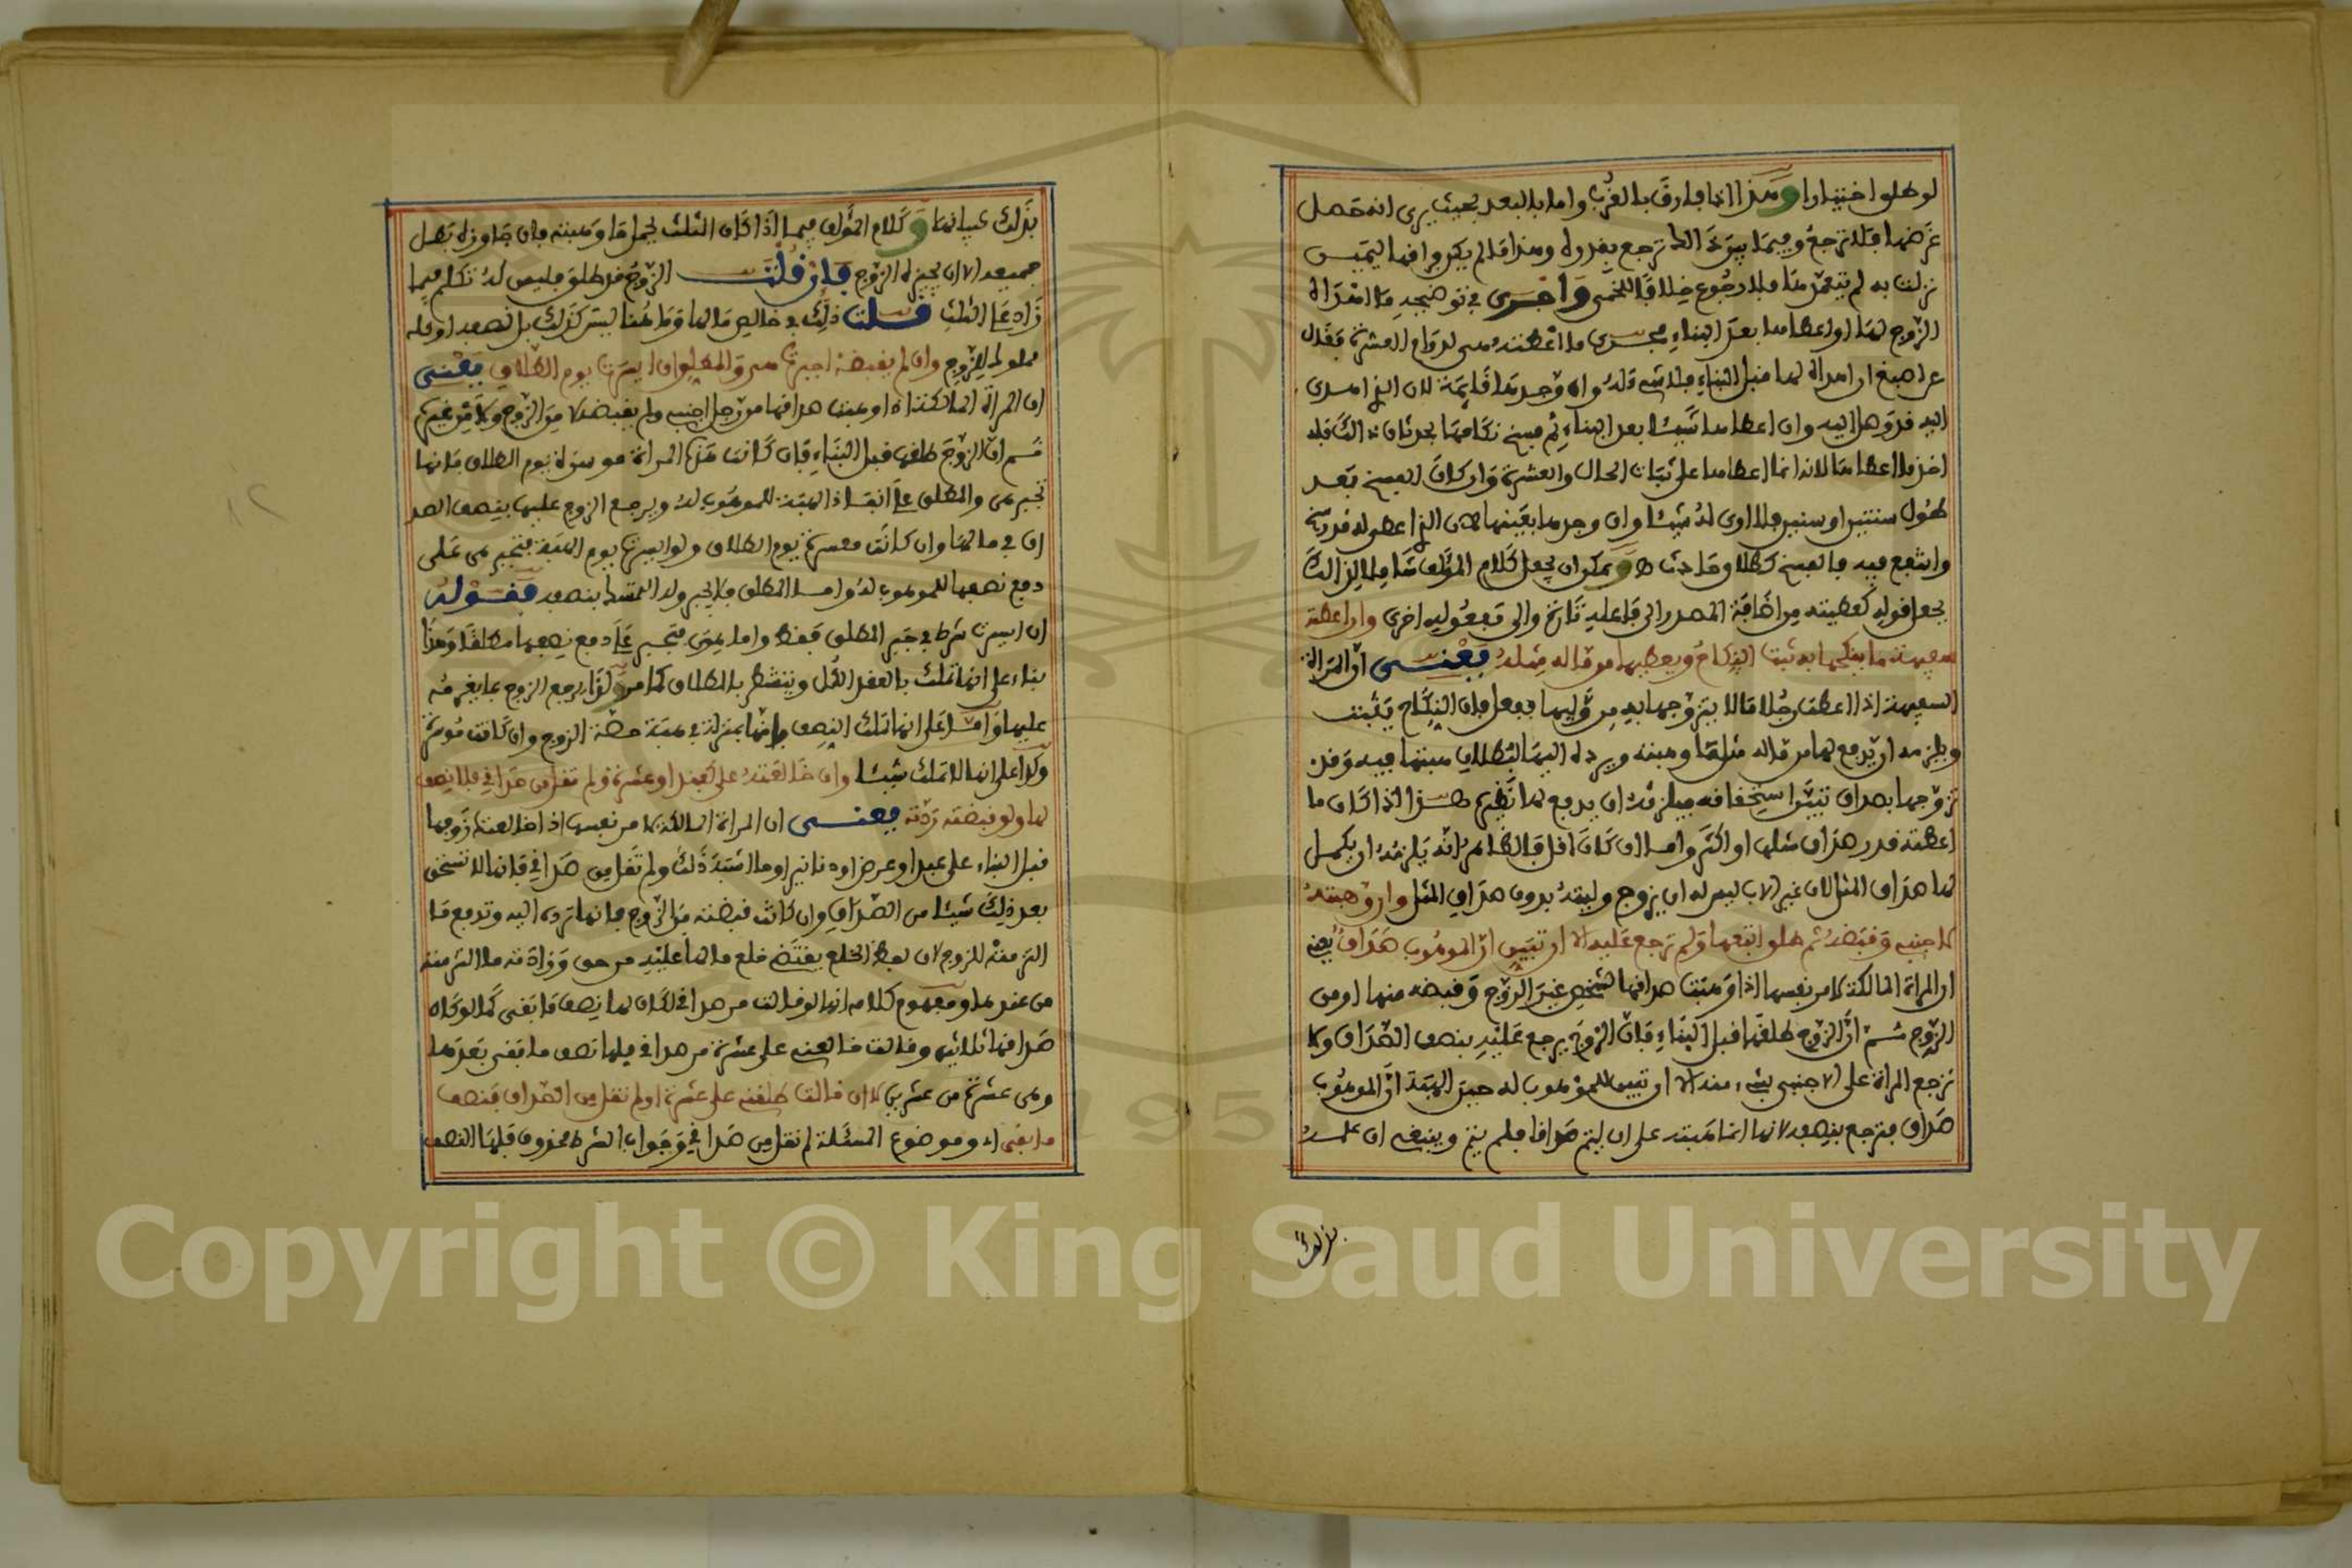 لو طلق اختيارا وهذا اذا فارق بالقرب واما بالبعد بحيث يرى انه حصل
غرضها فلا ترجع وفيما بين ذالك ترجع بقدره وهذا ما لم يكن فراقها ليمين
نزلت به لم يتعمدها فلا رجوع خلافا للخمي واجرى في توضيحه ما اهداه
الزوج لها او اعطاها بعد البناء مجرى ما اعطته هي لدوام العشرة فقال
عن اصبغ ان اهداه لها قبل البناء فلا شيء له وان وجدها قائمة لان الذي اهدى
اليه قد وصل اليه وان اعطاها شيئا بعد البناء ثم فسخ نكاحها بحدثان ذالك فله
اخذ ما اعطاها لانه انما اعطاها على ثبات الحال والعشرة وان كان الفسخ بعد
طول سنتين او سنين فلا ارى له شيئا وان وجدها بعينها لان الذي اعطى له قد رسخ
وانتفع فيه فالفسخ كطلاق حادث ويمكن ان يجعل كلام المؤلف شاملا لذالك
بجعل قوله كعطيته من اضافة المصدر الى فاعله تارة والى مفعوله اخرى وان اعطته
سفيهة ما ينكحها به ثبت النكاح ويعطيها من ماله مثله يعني ان المراة
السفيهة اذا اعطت رجلا مالا يتزوجها به من وليها ففعل فان النكاح يثبت
ويلزمه ان يدفع لها من ماله مثل ما وهبته ويرد له اليها لبطلان هبتها فيه وقد
تزوجها بصداق تبين استحقاقه فيلزمه ان يدفع لها نظيره هذا اذا كان ما
اعطته قدر صداق مثلها او اكثر واما ان كان اقل فالظاهر انه يلزمه ان يكمل
لها صداق المثل لان غير الاب ليس له ان يزوج وليته بدون صداق المثل وان وهبته
لاجنبي وقبضه ثم طلق اتبعها ولم ترجع عليه الا ان تبين ان الموهوب صداق يعني
ان المراة المالكة لامر نفسها اذا وهبت صداقها لشخص غير الزوج وقبضه منها او من
الزوج ثم ان الزوج طلقها قبل البناء فان الزوج يرجع عليه بنصف الصداق ولا
ترجع المراة على الاجنبي بشيء منه الا ان تبين للموهوب له حين الهبة ان الموهوب
صداق فترجع بنصفه لانها انما هبته على ان ليتم صداقا فلم يتم وينبغي ان علمه
بذلك
بذلك كبيانها وكلام المؤلف فيما اذا كان الثلث يحمل ما وهبته فان جاوزه بطل
جميعه الا ان يجيزه الزوج فان قلت الزوج قد طلق فليس له تكلم فيما
زاد على الثلث قلت ذلك في خالص مالها وما هنا ليس كذلك بل نصفه او كله
مملوك للزوج وان لم يقبضه اجبرت هي والمطلق ان ايسرت يوم الطلاق يعني
ان المراة المالكة اذا وهبت صداقها من رجل اجنبي ولم يقبضه لا من الزوج ولا من غيره
ثم ان الزوج طلقها قبل البناء فان كانت هذه المراة موسرة يوم الطلاق فانها
تجبر هي والمطلق على انفاذ الهبة للموهوب له ويرجع الزوج عليها بنصف الصد
اق في مالها وان كانت معسرة يوم الطلاق ولو ايسرت يوم الهبة فتجبر هي على
دفع نصفها للموهوب له واما المطلق فلا يجبر وله التمسك بنصفه فقوله
ان ايسرت شرط في جبر المطلق فقط واما هي فتجبر على دفع نصفها مطلقا وهذا
بناء على انها تملك بالعقد الكل ويتشطر بالطلاق كما مر ولذا يرجع الزوج بما يغرمه
عليها واما على انها تملك النصف فانها بمنزلة هبة حصة الزوج وان كانت موسرة
وكذا على انها لا تملك شيئا وان خالعته على كعبد او عشرة ولم تقل من صداقي فلا نصف
لها ولو قبضته ردته يعني ان المراة المالكة لامر نفسها اذا خالعت زوجها
قبل البناء على عبد او عرض او دنانير او ما اشبه ذلك ولم تقل من صداقي فانها لا تستحق
بعد ذلك شيئا من الصداق وان كانت قبضته من الزوج فانها ترده اليه وتدفع ما
التزمته للزوج لان لفظ الخلع يقتضي خلع ما لها عليه من حق وزادته ما التزمته
من عندها ومفهوم كلامه انها لو قالت من صداقي لكان لها نصف ما بقي كما لو كان
صداقها ثلاثين وقالت خالعني على عشرة من صداقي فلها نصف ما بقي بعدها
وهي عشرة من عشرين لا ان قالت طلقني على عشرة او لم تقل من الصداق فنصف
ما بقي اي وموضوع المسئلة لم تقل من صداقي وجواب الشرط محذوف فلها النصف